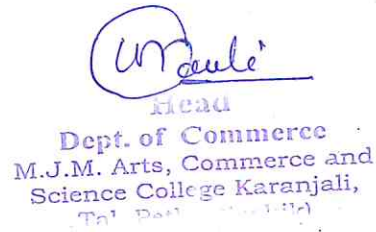 Head
Dept. of Commerce
M.J.M. Arts, Commerce and
Science College Karanjali,
Tal.